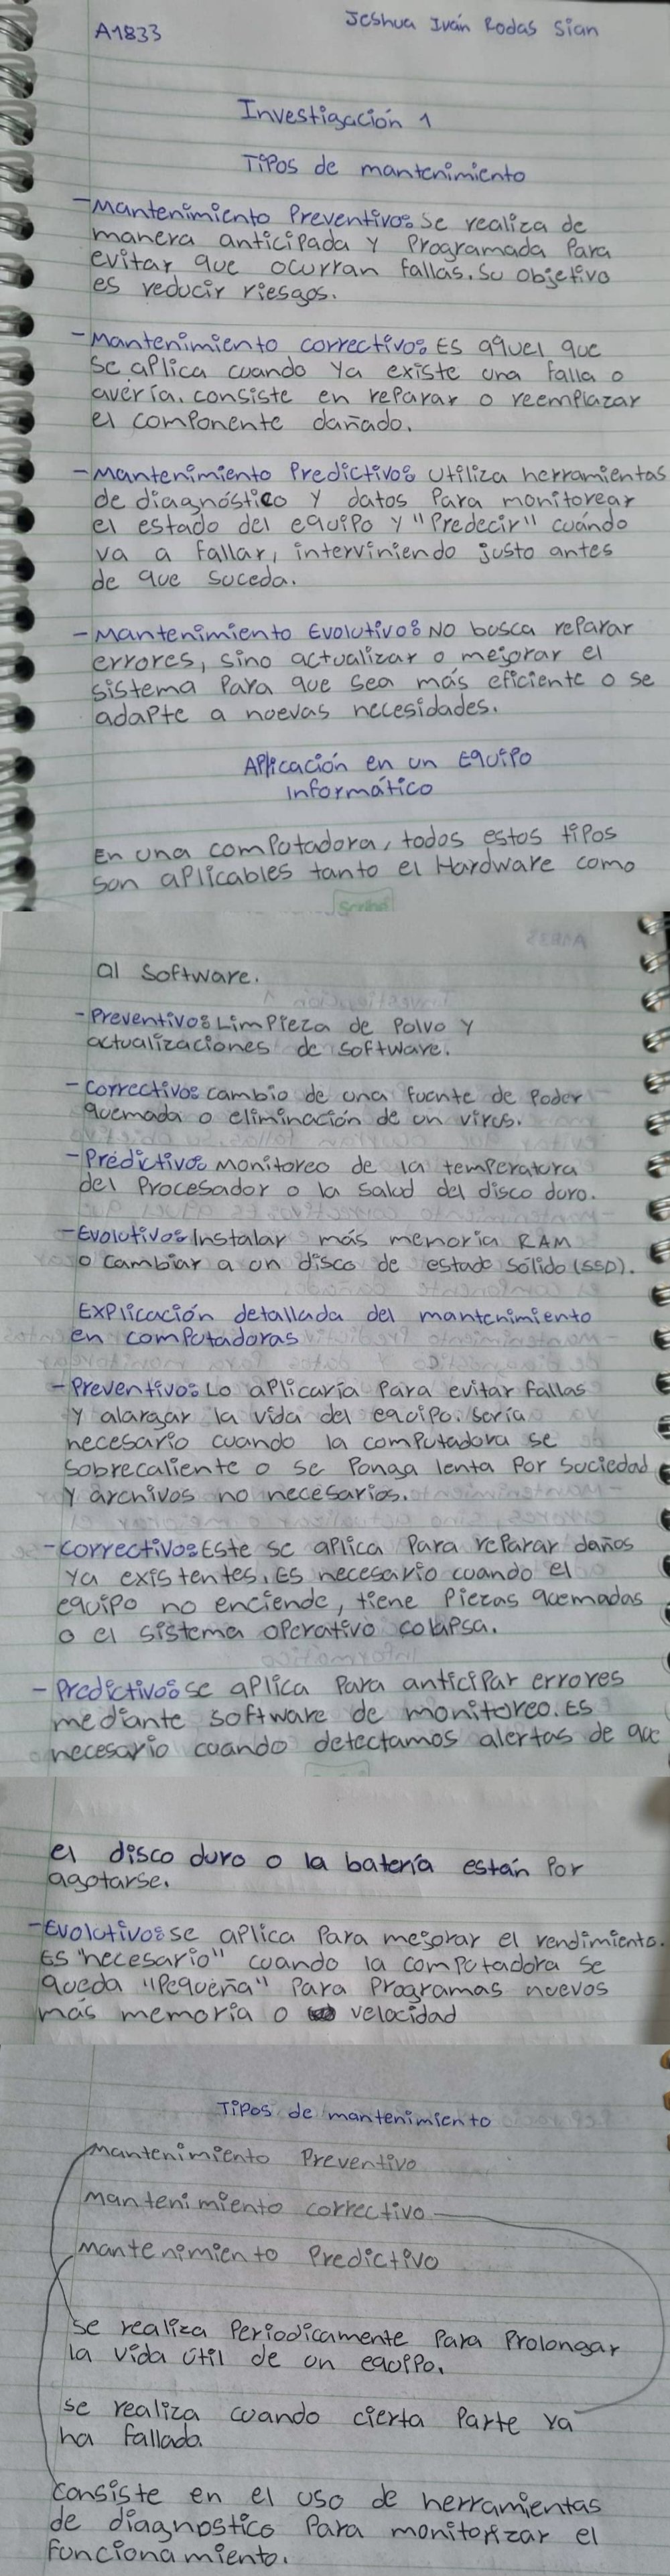 A1833
Jeshua Iván Rodas Sian
Investigación 1
Tipos de mantenimiento
-Mantenimiento Preventivo: Se realiza de
manera anticipada y Programada Para
evitar que ocurran fallas. Su objetivo
es reducir riesgos.
-Mantenimiento correctivo: Es aquel que
se aplica cuando ya existe una falla o
avería. consiste en reparar o reemplazar
el componente dañado.
-Mantenimiento Predictivo: Utiliza herramientas
de diagnóstico y datos Para monitorear
el estado del equipo y "Predecir" cuándo
va a fallar, interviniendo justo antes
de que suceda.
-Mantenimiento Evolutivo: No busca reparar
errores, sino actualizar o mejorar el
sistema Para que sea más eficiente o se
adapte a nuevas necesidades.
Aplicación en un Equipo
Informático
En una computadora, todos estos tipos
son aplicables tanto el Hardware como
Scribe
al software.
-Preventivo: Limpieza de Polvo y
actualizaciones de software.
-Correctivo: cambio de una fuente de Poder
quemada o eliminación de un virus.
-Predictivo: Monitoreo de la temperatura
del Procesador o la salud del disco duro.
-Evolutivo: Instalar más memoria RAM
o cambiar a un disco de estado sólido (SSD).
Explicación detallada del mantenimiento
en computadoras
-Preventivo: Lo aplicaría Para evitar fallas
y alargar la vida del equipo. Sería
necesario cuando la computadora se
sobrecaliente o se Ponga lenta Por suciedad
y archivos no necesarios.
-Correctivo: Este se aplica Para reparar daños
ya existentes. Es necesario cuando el
equipo no enciende, tiene Piezas quemadas
o el sistema operativo colapsa.
-Predictivo: se aplica Para anticipar errores
mediante software de monitoreo. Es
necesario cuando detectamos alertas de que
el disco duro o la batería están Por
agotarse.
-Evolutivo: se aplica Para mejorar el rendimiento.
Es "necesario" cuando la computadora se
queda "Pequeña" Para Programas nuevos
más memoria o velocidad
Tipos de mantenimiento
Mantenimiento Preventivo
Mantenimiento correctivo
Mantenimiento Predictivo
se realiza Periodicamente Para Prolongar
la vida útil de un equipo.
se realiza cuando cierta Parte ya
ha fallado.
Consiste en el uso de herramientas
de diagnostico Para monitorizar el
funcionamiento.